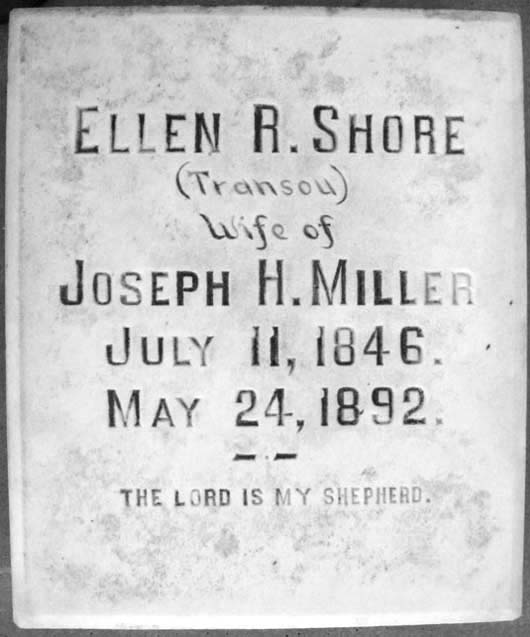 ELLEN R. SHORE
(Transou)
Wife of
JOSEPH H. MILLER
JULY 11, 1846.
MAY 24, 1892.
THE LORD IS MY SHEPHERD.